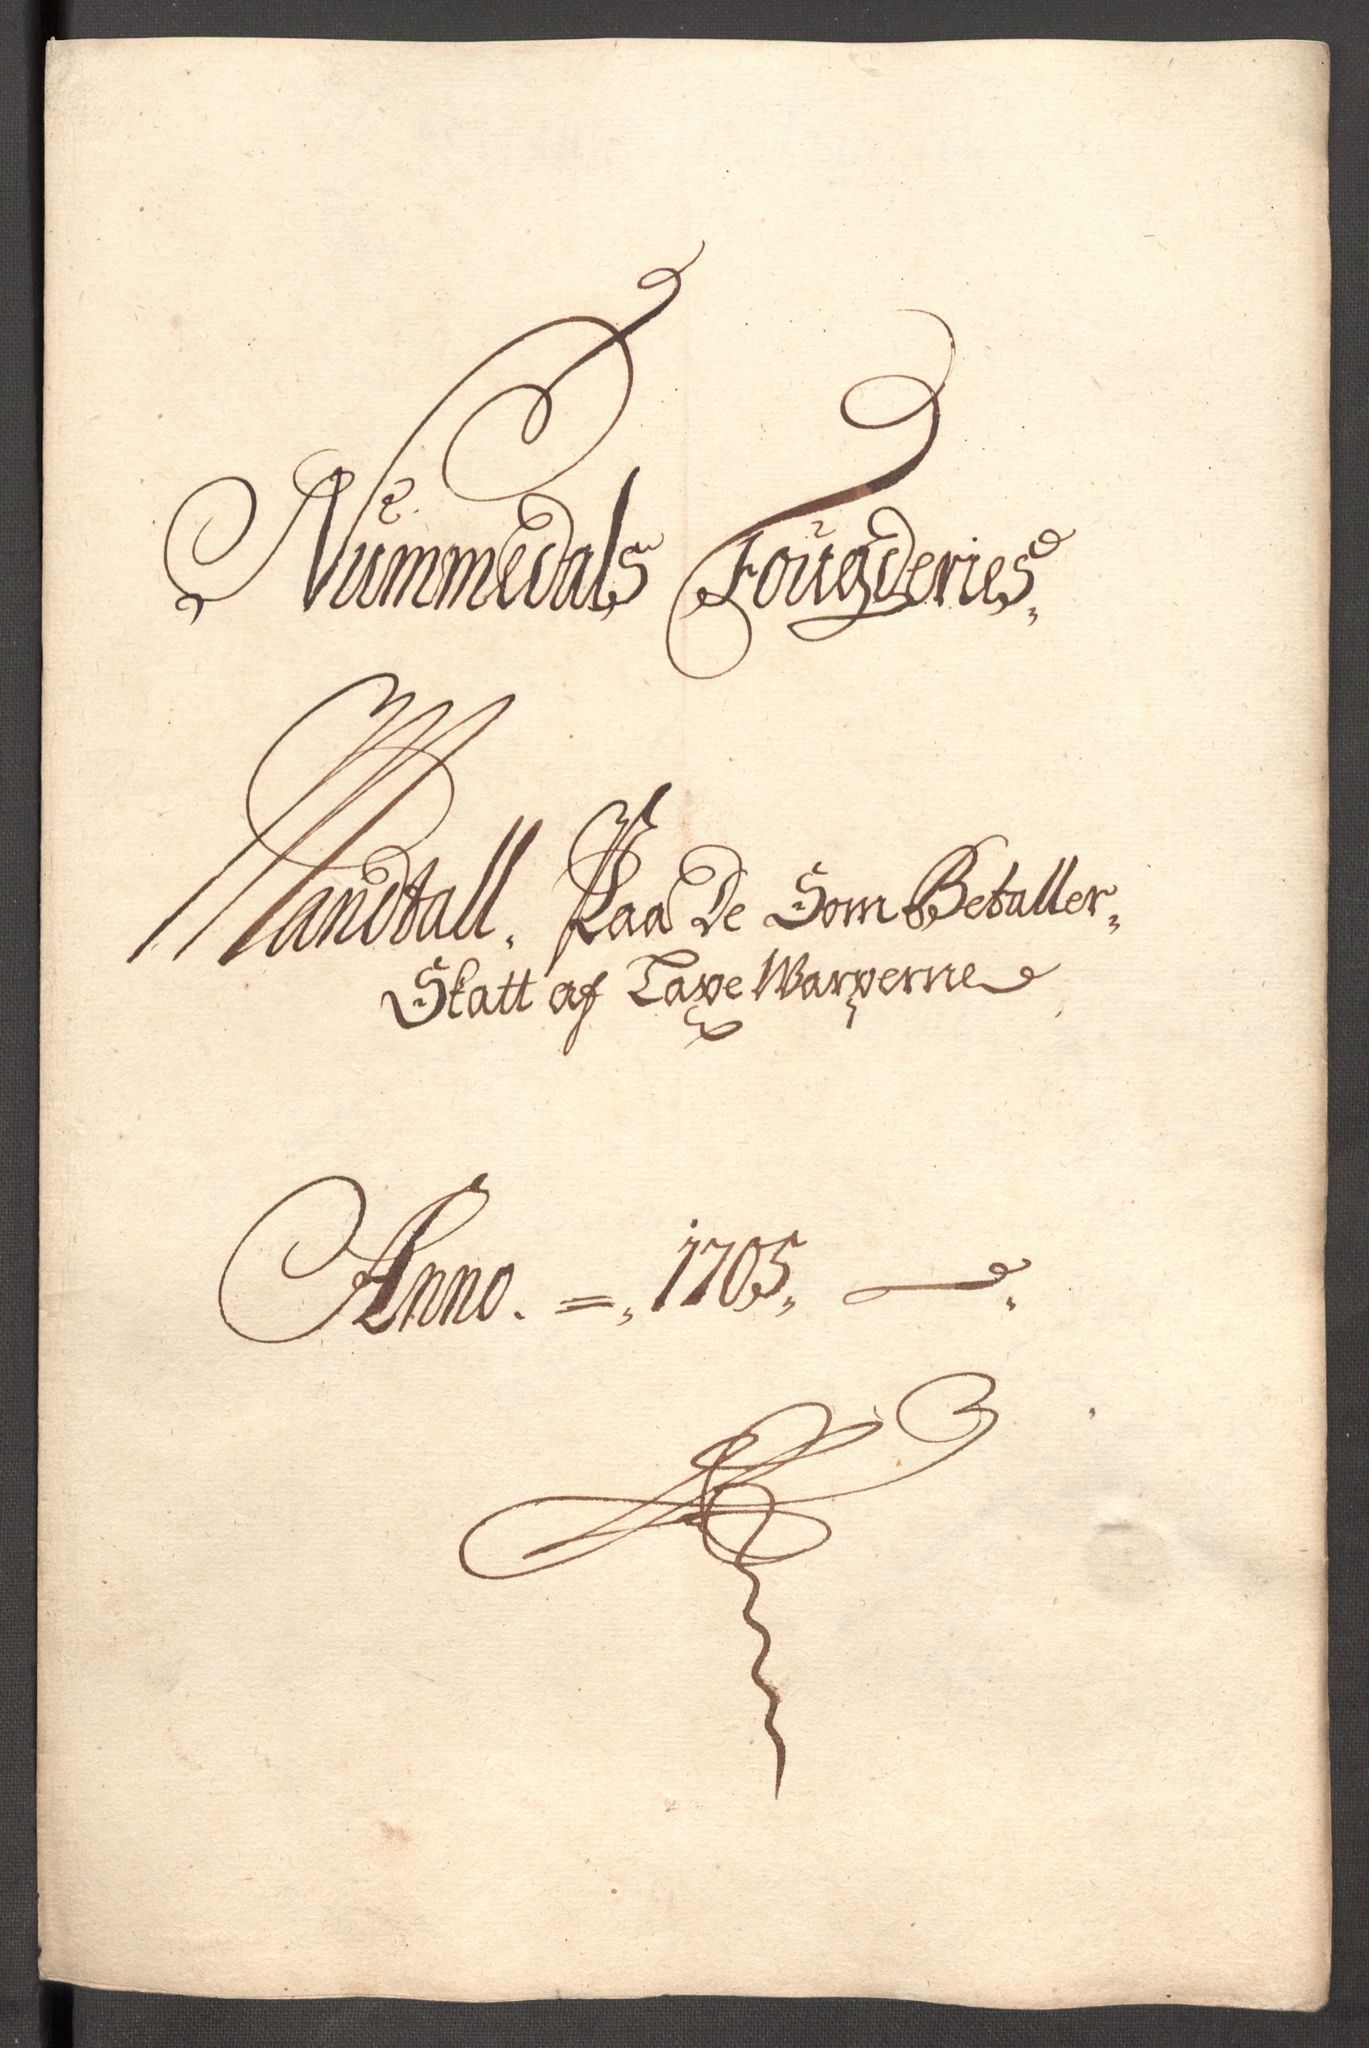 Nummedals Fougderies.
Mandtall. Paa De Som Betaller.
Skatt af Laxe Warperne
Anno. =, 1705,